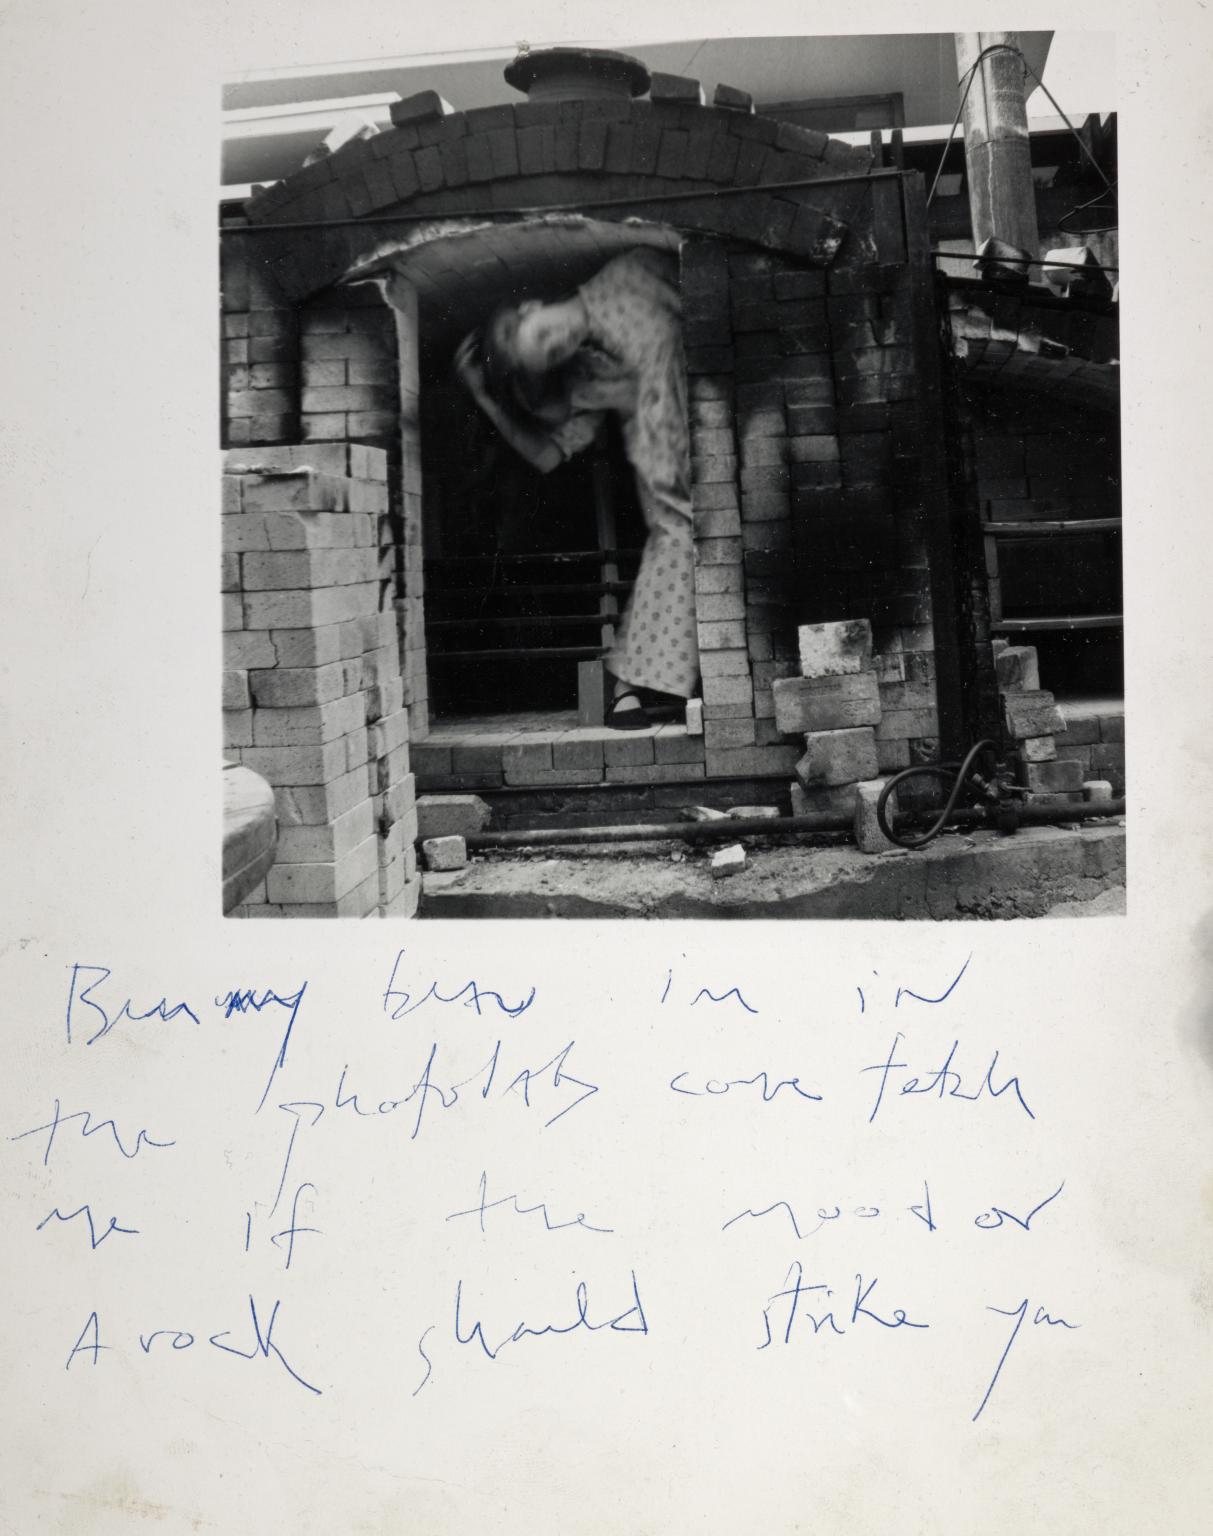 Bunny bear im in
the photolab come fetch
me if the mood or
A rock should strike you